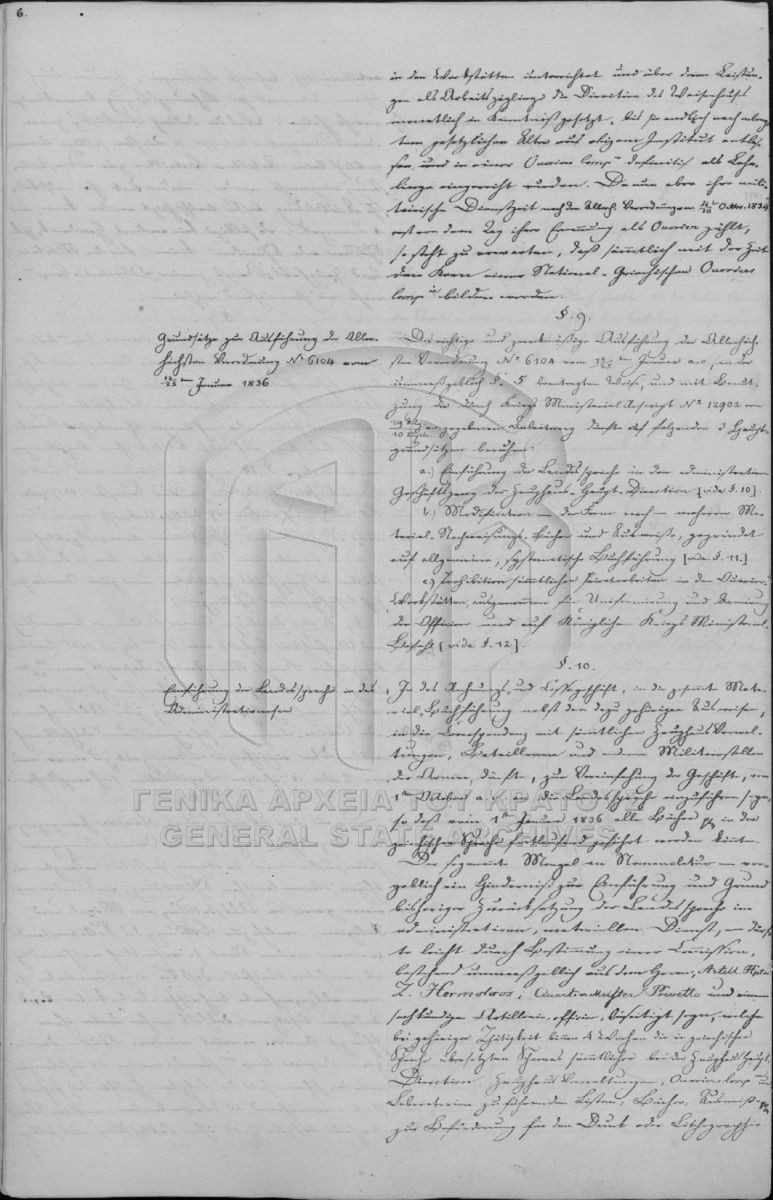 6.
in den Werkstätten unterrichtet und über deren Leistun-
gen als Arbeitszöglinge die Direction des Waisenhauses
monatlich in Kenntniß gesetzt, bis sie endlich nach
tem gesetzlichen Alter aus obigem Institut entlas-
sen und in einer Ouvrier Comp. definitif als Lehr-
linge eingereiht wurden. Da nun aber ihre mili-
tairische Dienstzeit nach der Allerh. Verordnung vom Octbr. 1834
erst von dem Tag ihrer Ernennung als Ouvrier zählt,
so steht zu erwarten, daß sämmtlich mit der Zeit
den Kern einer National-Griechischen Ouvrier
Comp. bilden werden.
§. 9.
Grundsätze zur Ausführung der Aller-
höchsten Verordnung No 6104 vom
13/25 Januar 1836
Die richtige und zweckmäßige Ausführung der Allerhöch-
sten Verordnung No 6104 vom 13/25 Januar a.c., in der
unmaßgeblich §. 5 beantragten Weise, und mit Benut-
zung der durch Kriegs Ministerial Rescript No 12902 vom
gegebenen Anleitung dürfte auf folgenden 3 Haupt-
grundsätzen beruhen:
a.) Einführung der Landessprache in den administrativen
Geschäftsgang der Zeughaus-Haupt-Direction [vide §. 10].
b.) Modification in der Form noch mehrerer Ma-
terial-Nachweisungs-Bücher und Ausweise, gegründet
auf allgemeine, systematische Buchführung [vide §. 11.]
c.) Prohibition sämmtlicher Privatarbeiten in den Ouvrier-
Werkstätten, ausgenommen für Uniformirung und Armirung
der Officiere und auf Königlichen Kriegs Ministerial-
Befehl [vide §. 12].
§. 10.
Einführung der Landessprache in das
Administrationswesen
In das Rechnungs- und Cassageschäft, in die gesammte Mate-
rial-Buchführung nebst den dazu gehörigen Ausweisen,
in die Correspondenz mit sämtlichen Zeughaus Verwal-
tungen, Bataillonen und andern Militairstellen
der Armee, dürfte, zur Vereinfachung der Geschäfte, vom
1ten October a.c. an die Landessprache einzuführen seyn,
so daß vom 1ten Januar 1836 alle Bücher in der
griechischen Sprache fortlaufend geführt werden könnten.
Der sogenannte Mangel an Nomenclatur - vor-
geblich ein Hinderniß zur Einführung und Grund
bisheriger Zurücksetzung der Landessprache im
administrativen, materiellen Dienst, - dürf-
te leicht durch Bestimmung einer Commission,
bestehend unmaßgeblich aus den Herren, Artill. Hptm.
Z. Hermoloos, Quartiermeister und einem
sachkundigen Artillerie-offizier, beseitigt seyn, welche
bei gehöriger Thätigkeit binnen 4 Wochen die in griechischer
Sprache übersetzten Schemas sämmtlicher bei der Zeughaus Haupt-
Direction, Zeughaus Verwaltungen, Ouvrier Comp. und
Laboratorien zu führenden Listen, Bücher, Ausweise
zur Beförderung für den Druck oder Lithographie